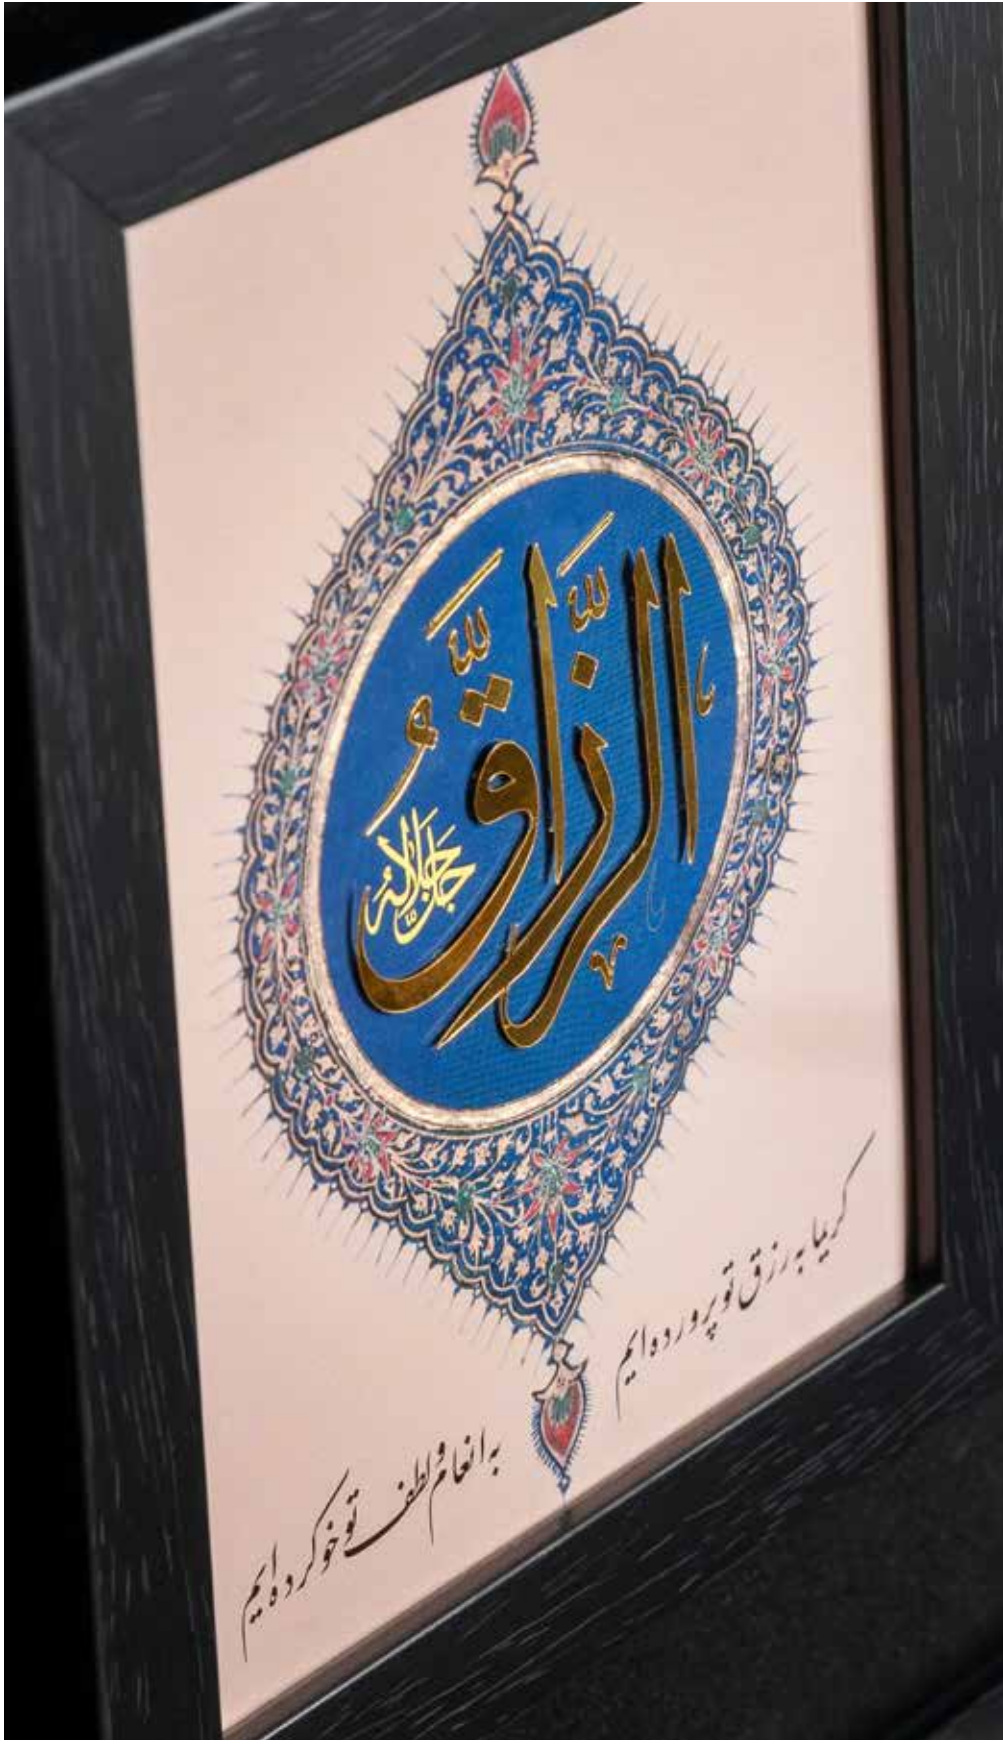 الرَّزَّاقُ
جَلَّ جَلالُهُ
کریما به رزق تو پرورده‌ایم
به انعام و لطف تو خو کرده‌ایم